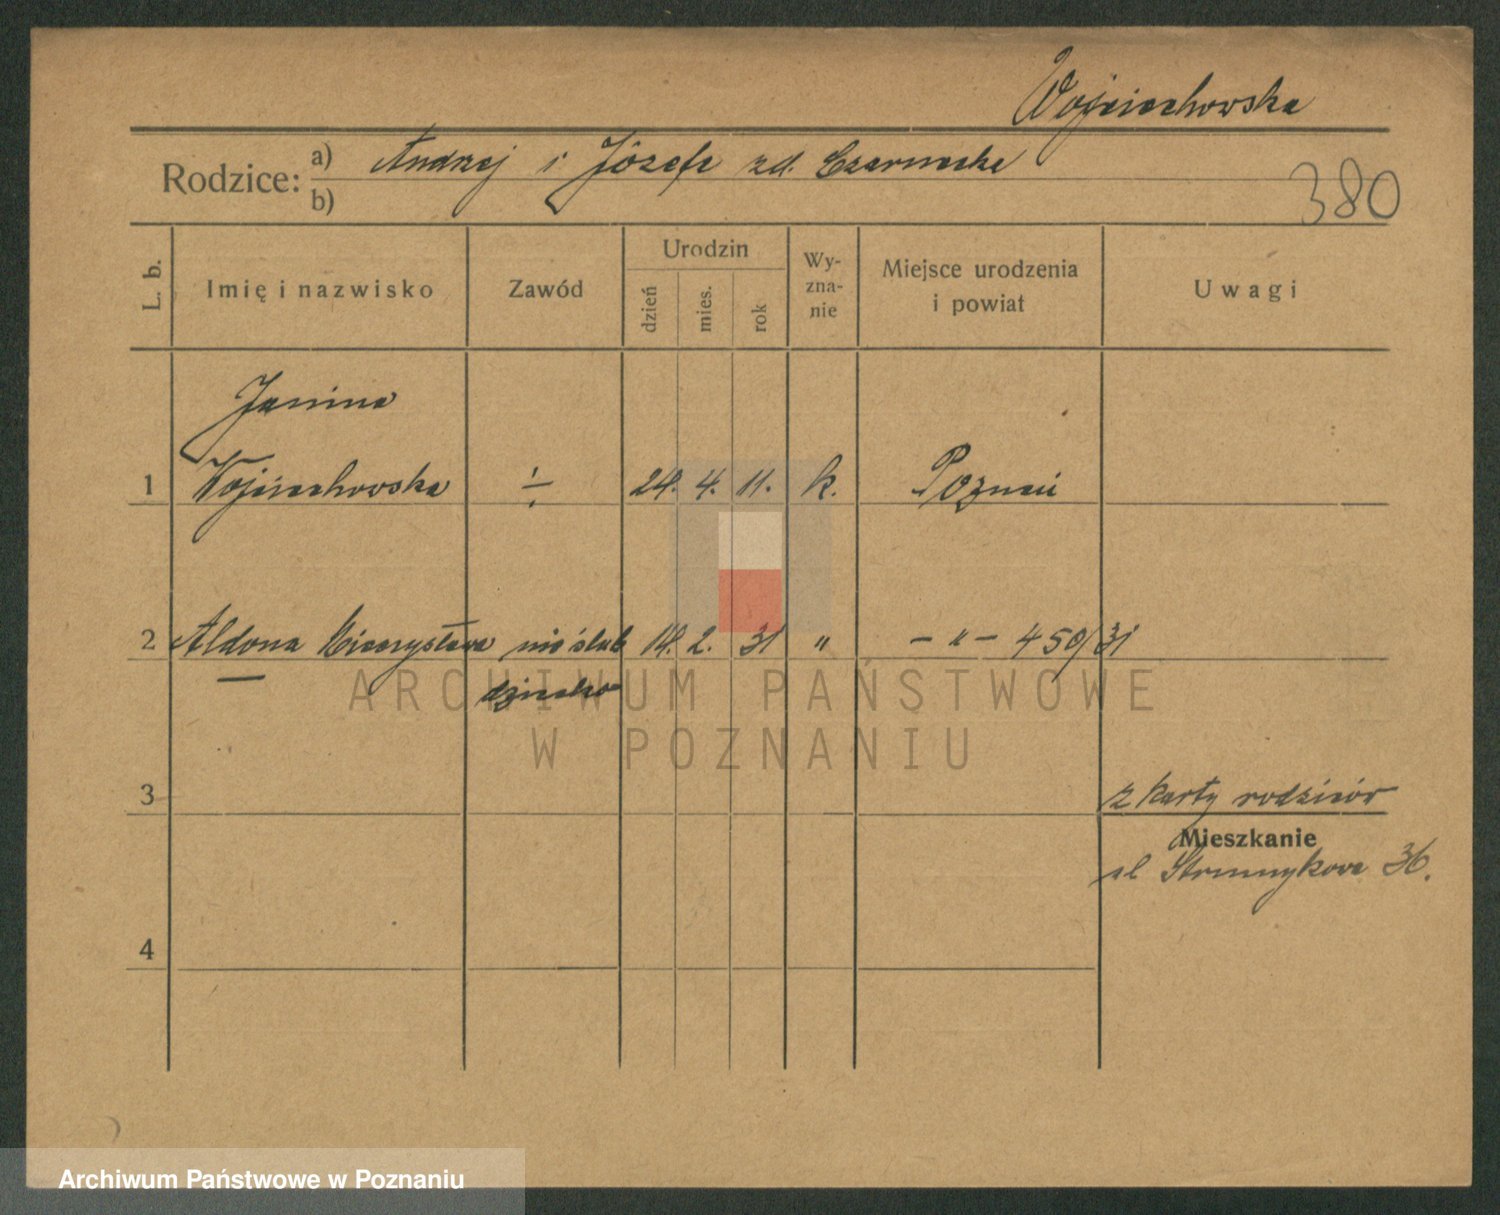 Wojciechowska
Rodzice: a) Andrzej i Józefa zd. Czarnecka
b)
380
L. b. Imię i nazwisko Zawód Urodzin dzień mies. rok Wyznanie Miejsce urodzenia i powiat Uwagi
Janina
1 Wojciechowska ÷ 24. 4. 11. k. Poznań
2 Aldona Mieczysława nieślub 14. 2. 31 " — " — 450/31
dziecko
ARCHIWUM PAŃSTWOWE
W POZNANIU
3 z karty rodziców
Mieszkanie
ul Strumykowa 36.
4
Archiwum Państwowe w Poznaniu